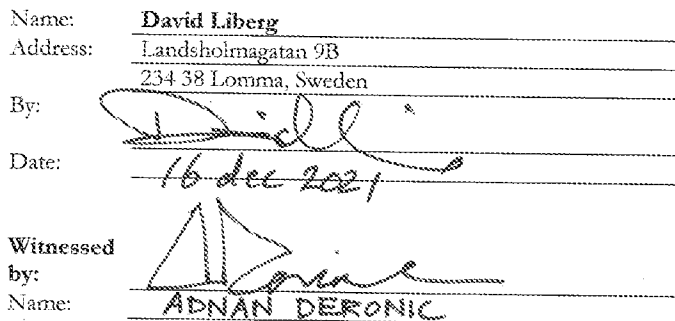 Name: David Liberg
Address: Landsholmagatan 9B
234 38 Lomma, Sweden
By:
Date: 16 dec 2021
Witnessed
by:
Name: ADNAN DERONIC